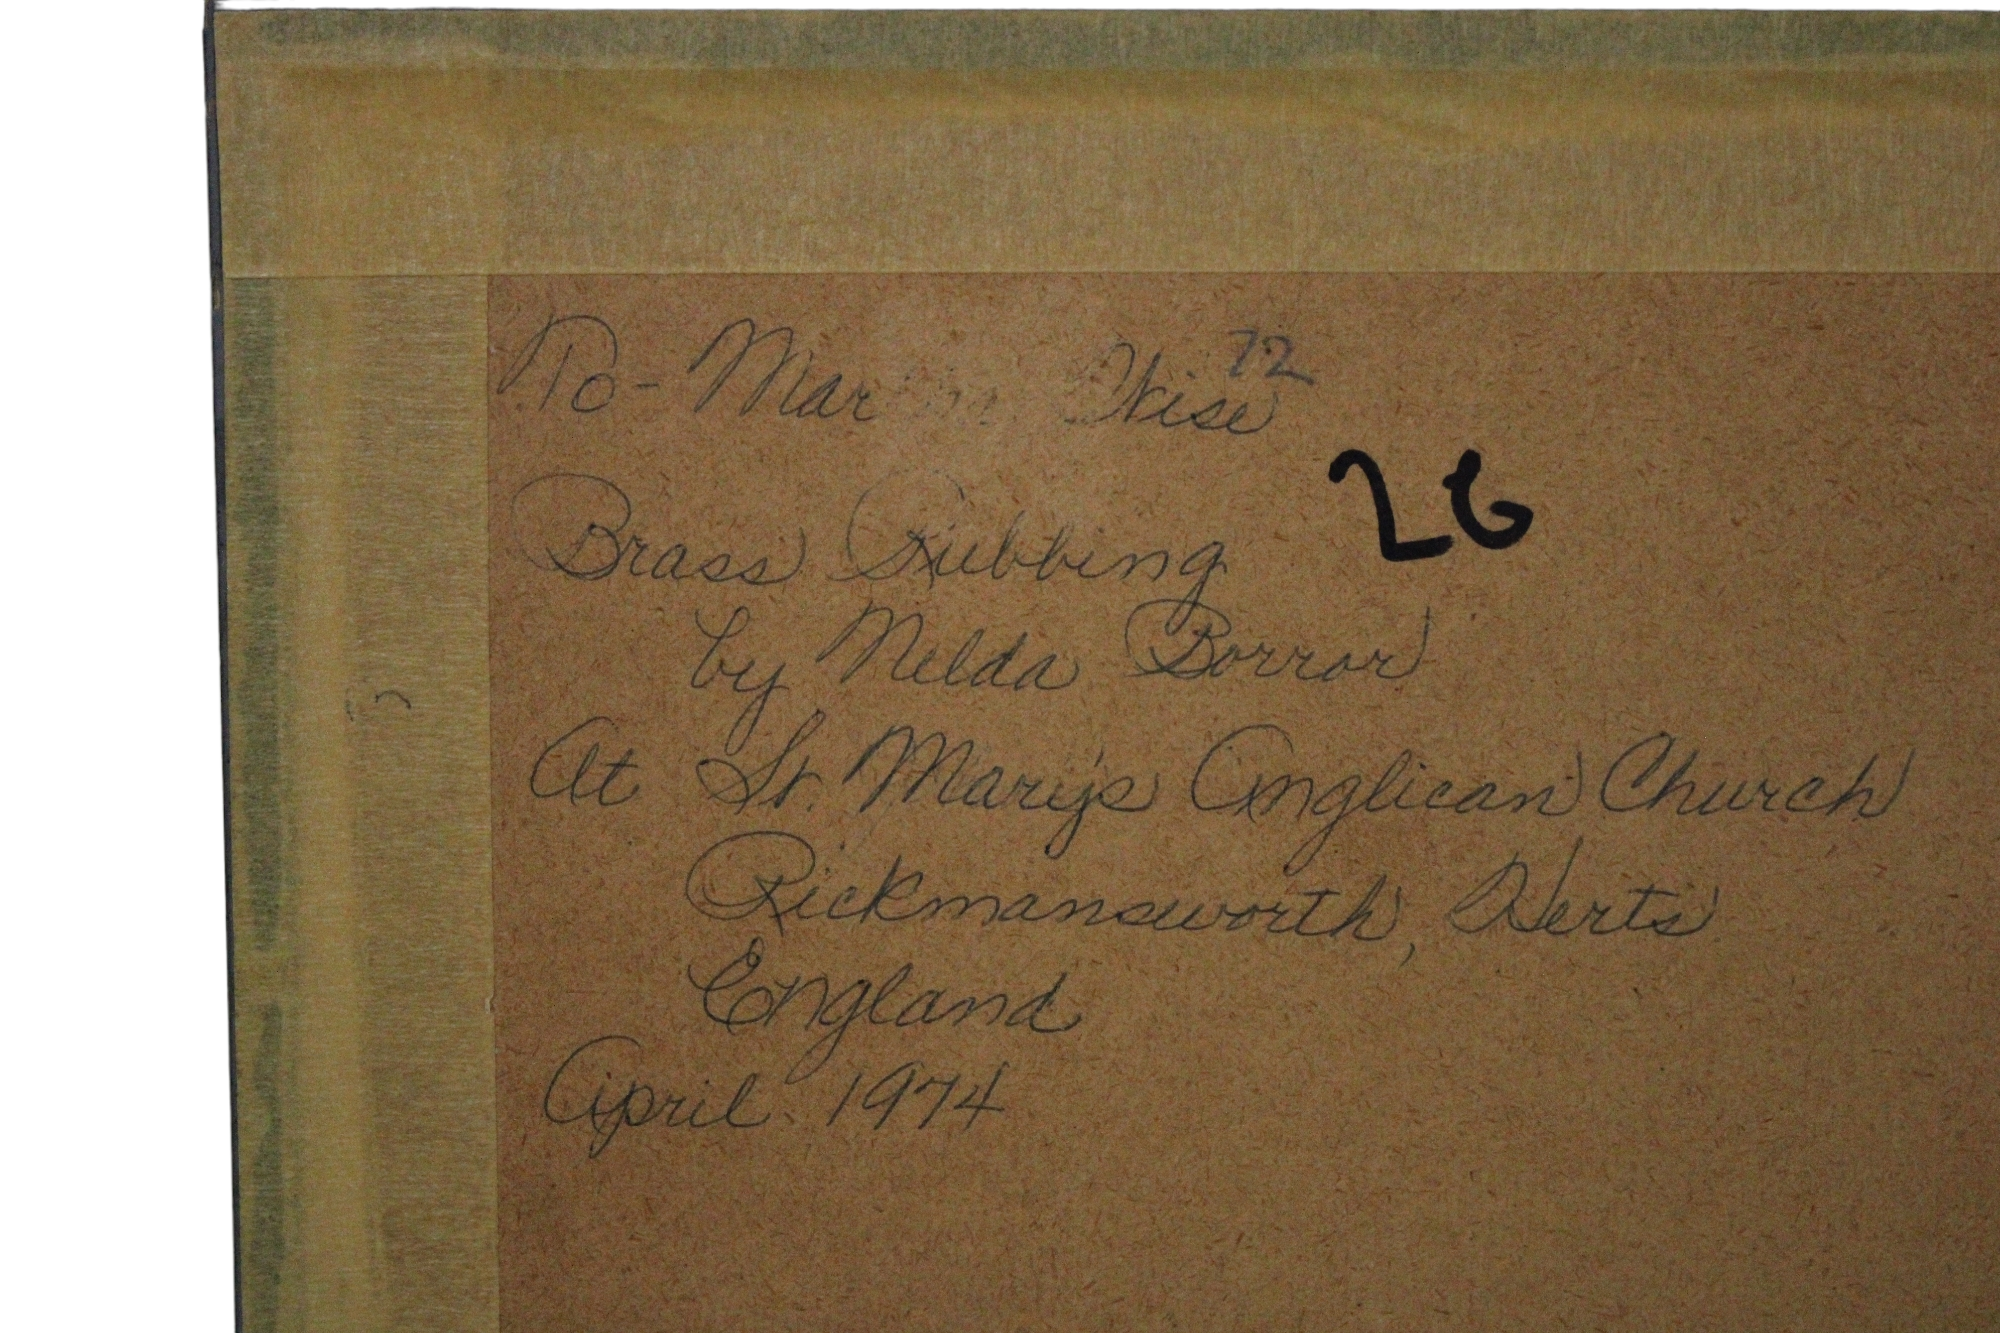 To - Mar Wise 72
26
Brass Rubbing
by Nelda Borror
At St. Mary's Anglican Church
Rickmansworth, Herts
England
April 1974